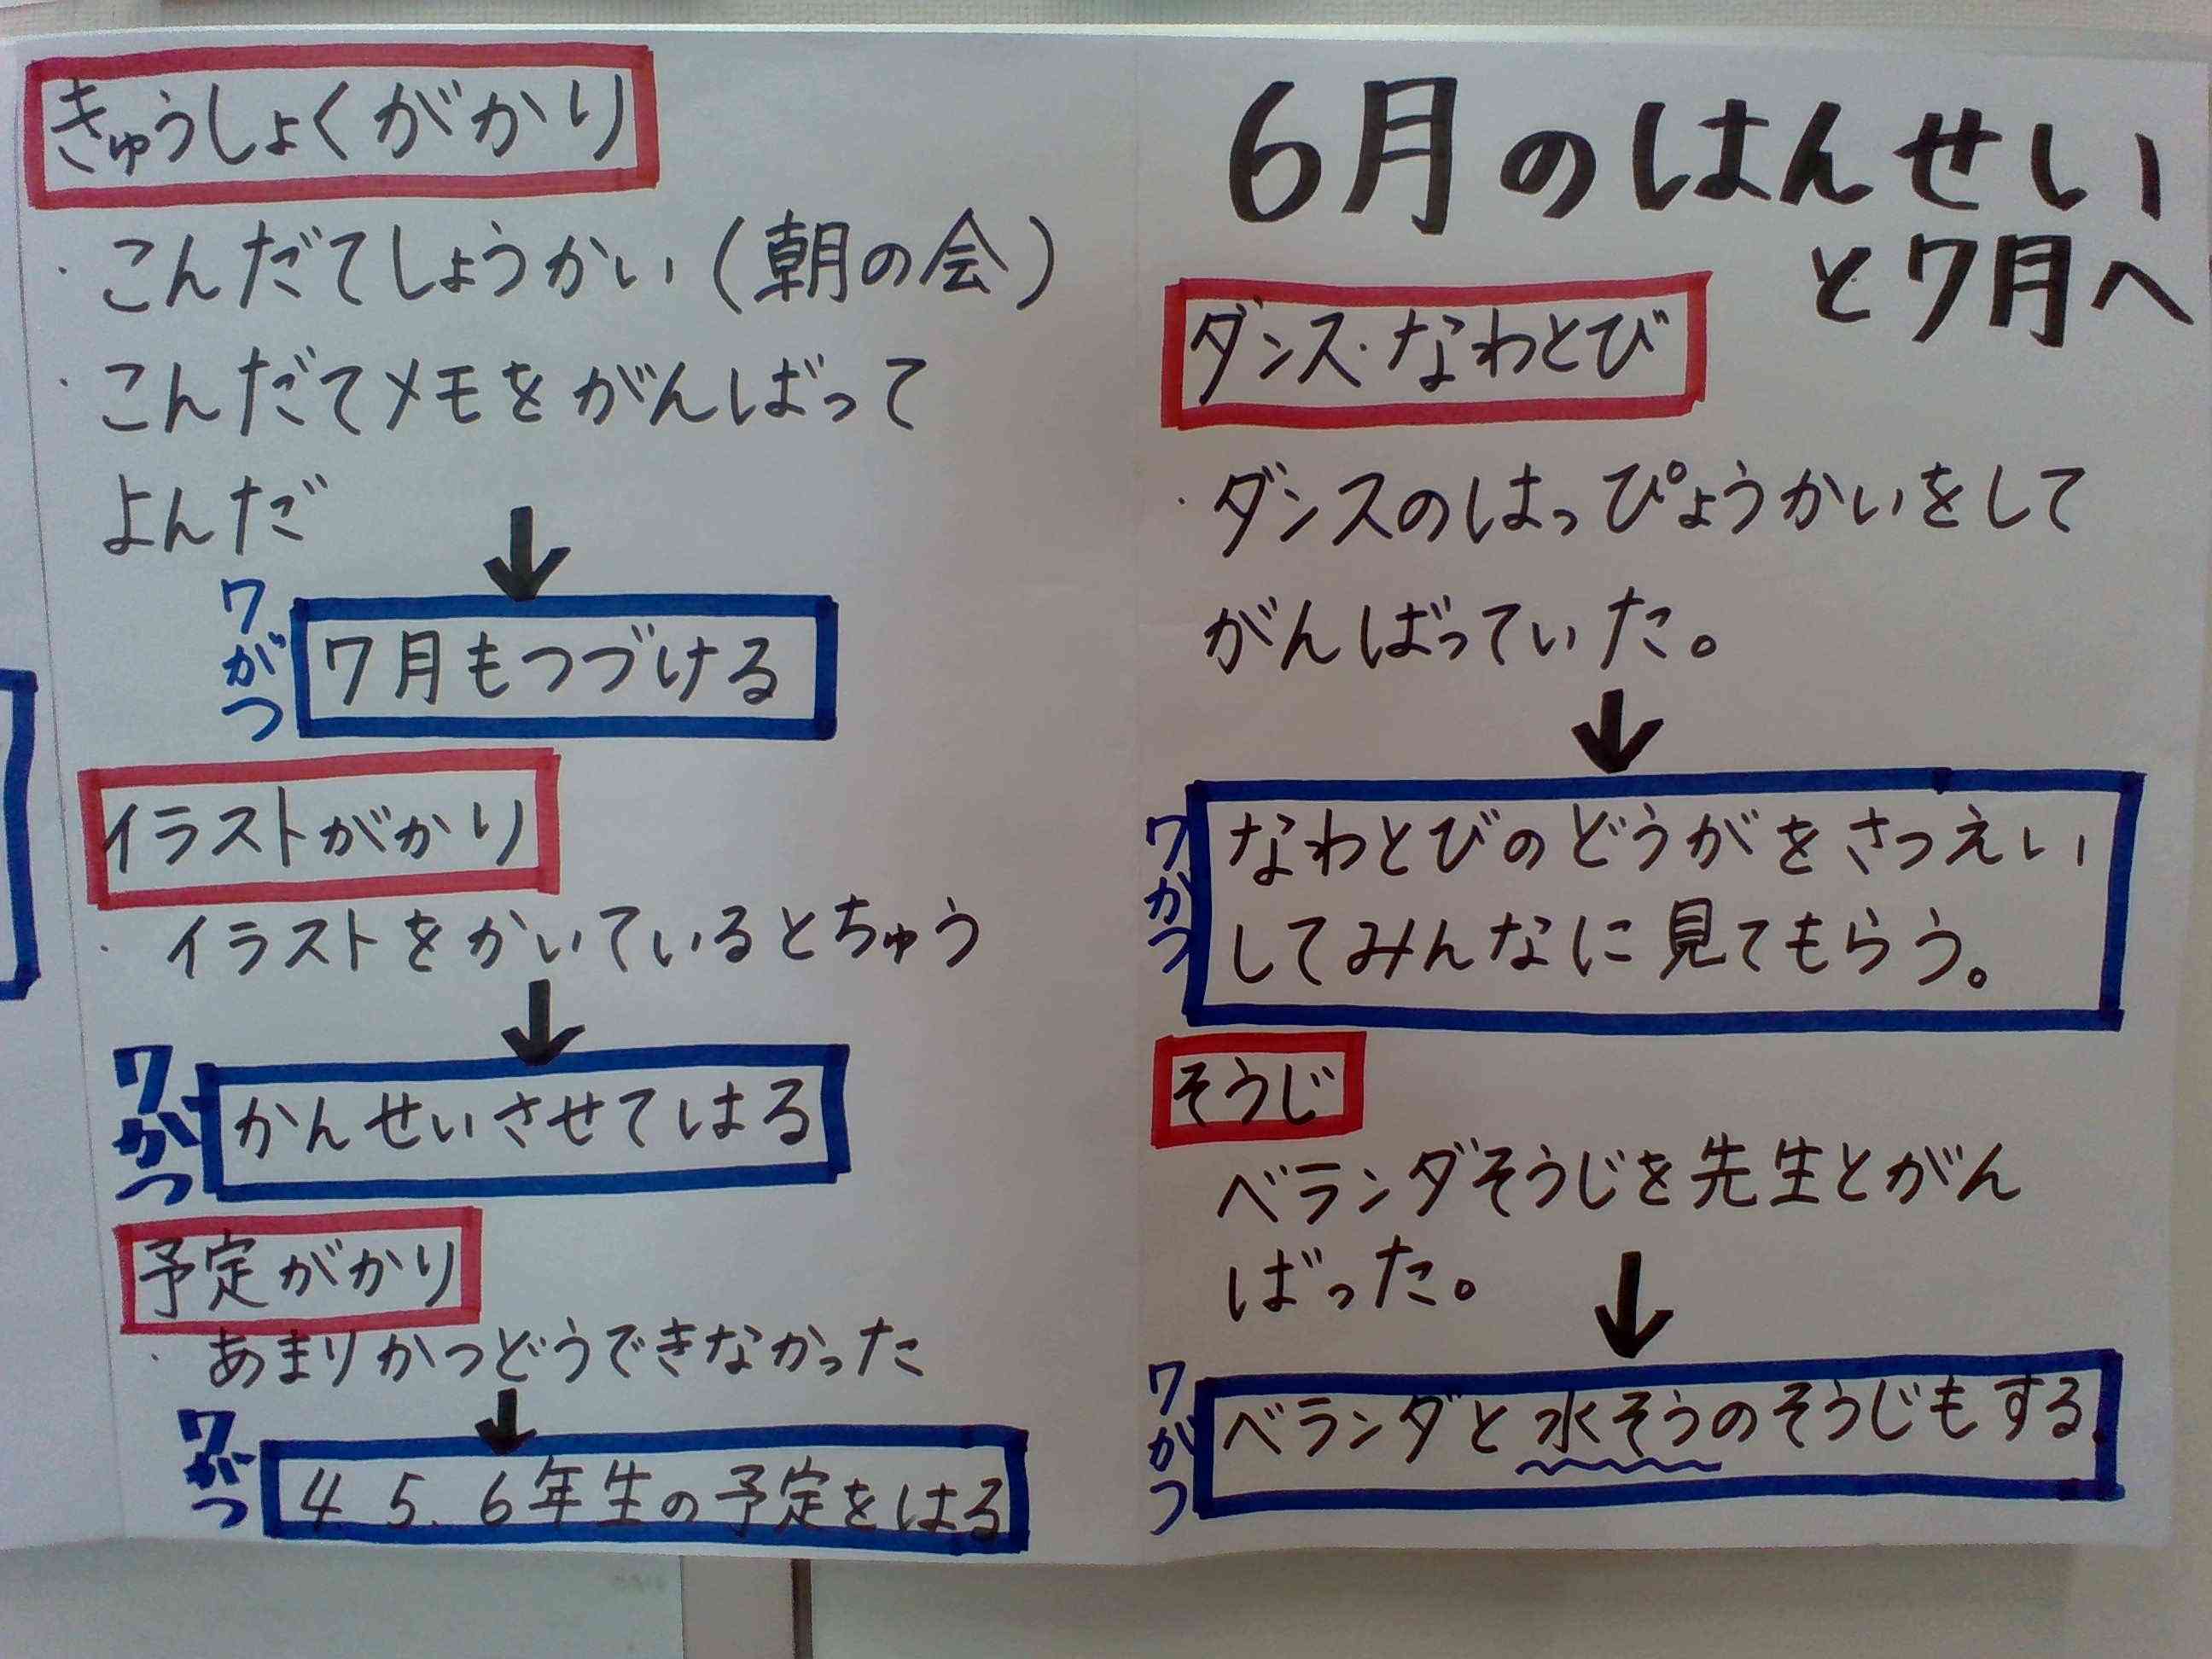 6月のはんせい
と7月へ
ダンス・なわとび
・ダンスのはっぴょうかいをして
がんばっていた。
7がつ
なわとびのどうがをさつえい
してみんなに見てもらう。
そうじ
ベランダそうじを先生とがん
ばった。
7がつ
ベランダと水そうのそうじもする
きゅうしょくがかり
・こんだてしょうかい(朝の会)
・こんだてメモをがんばって
よんだ
7がつ
7月もつづける
イラストがかり
・イラストをかいているとちゅう
7がつ
かんせいさせてはる
予定がかり
・あまりかつどうできなかった
7がつ
4.5.6年生の予定をはる